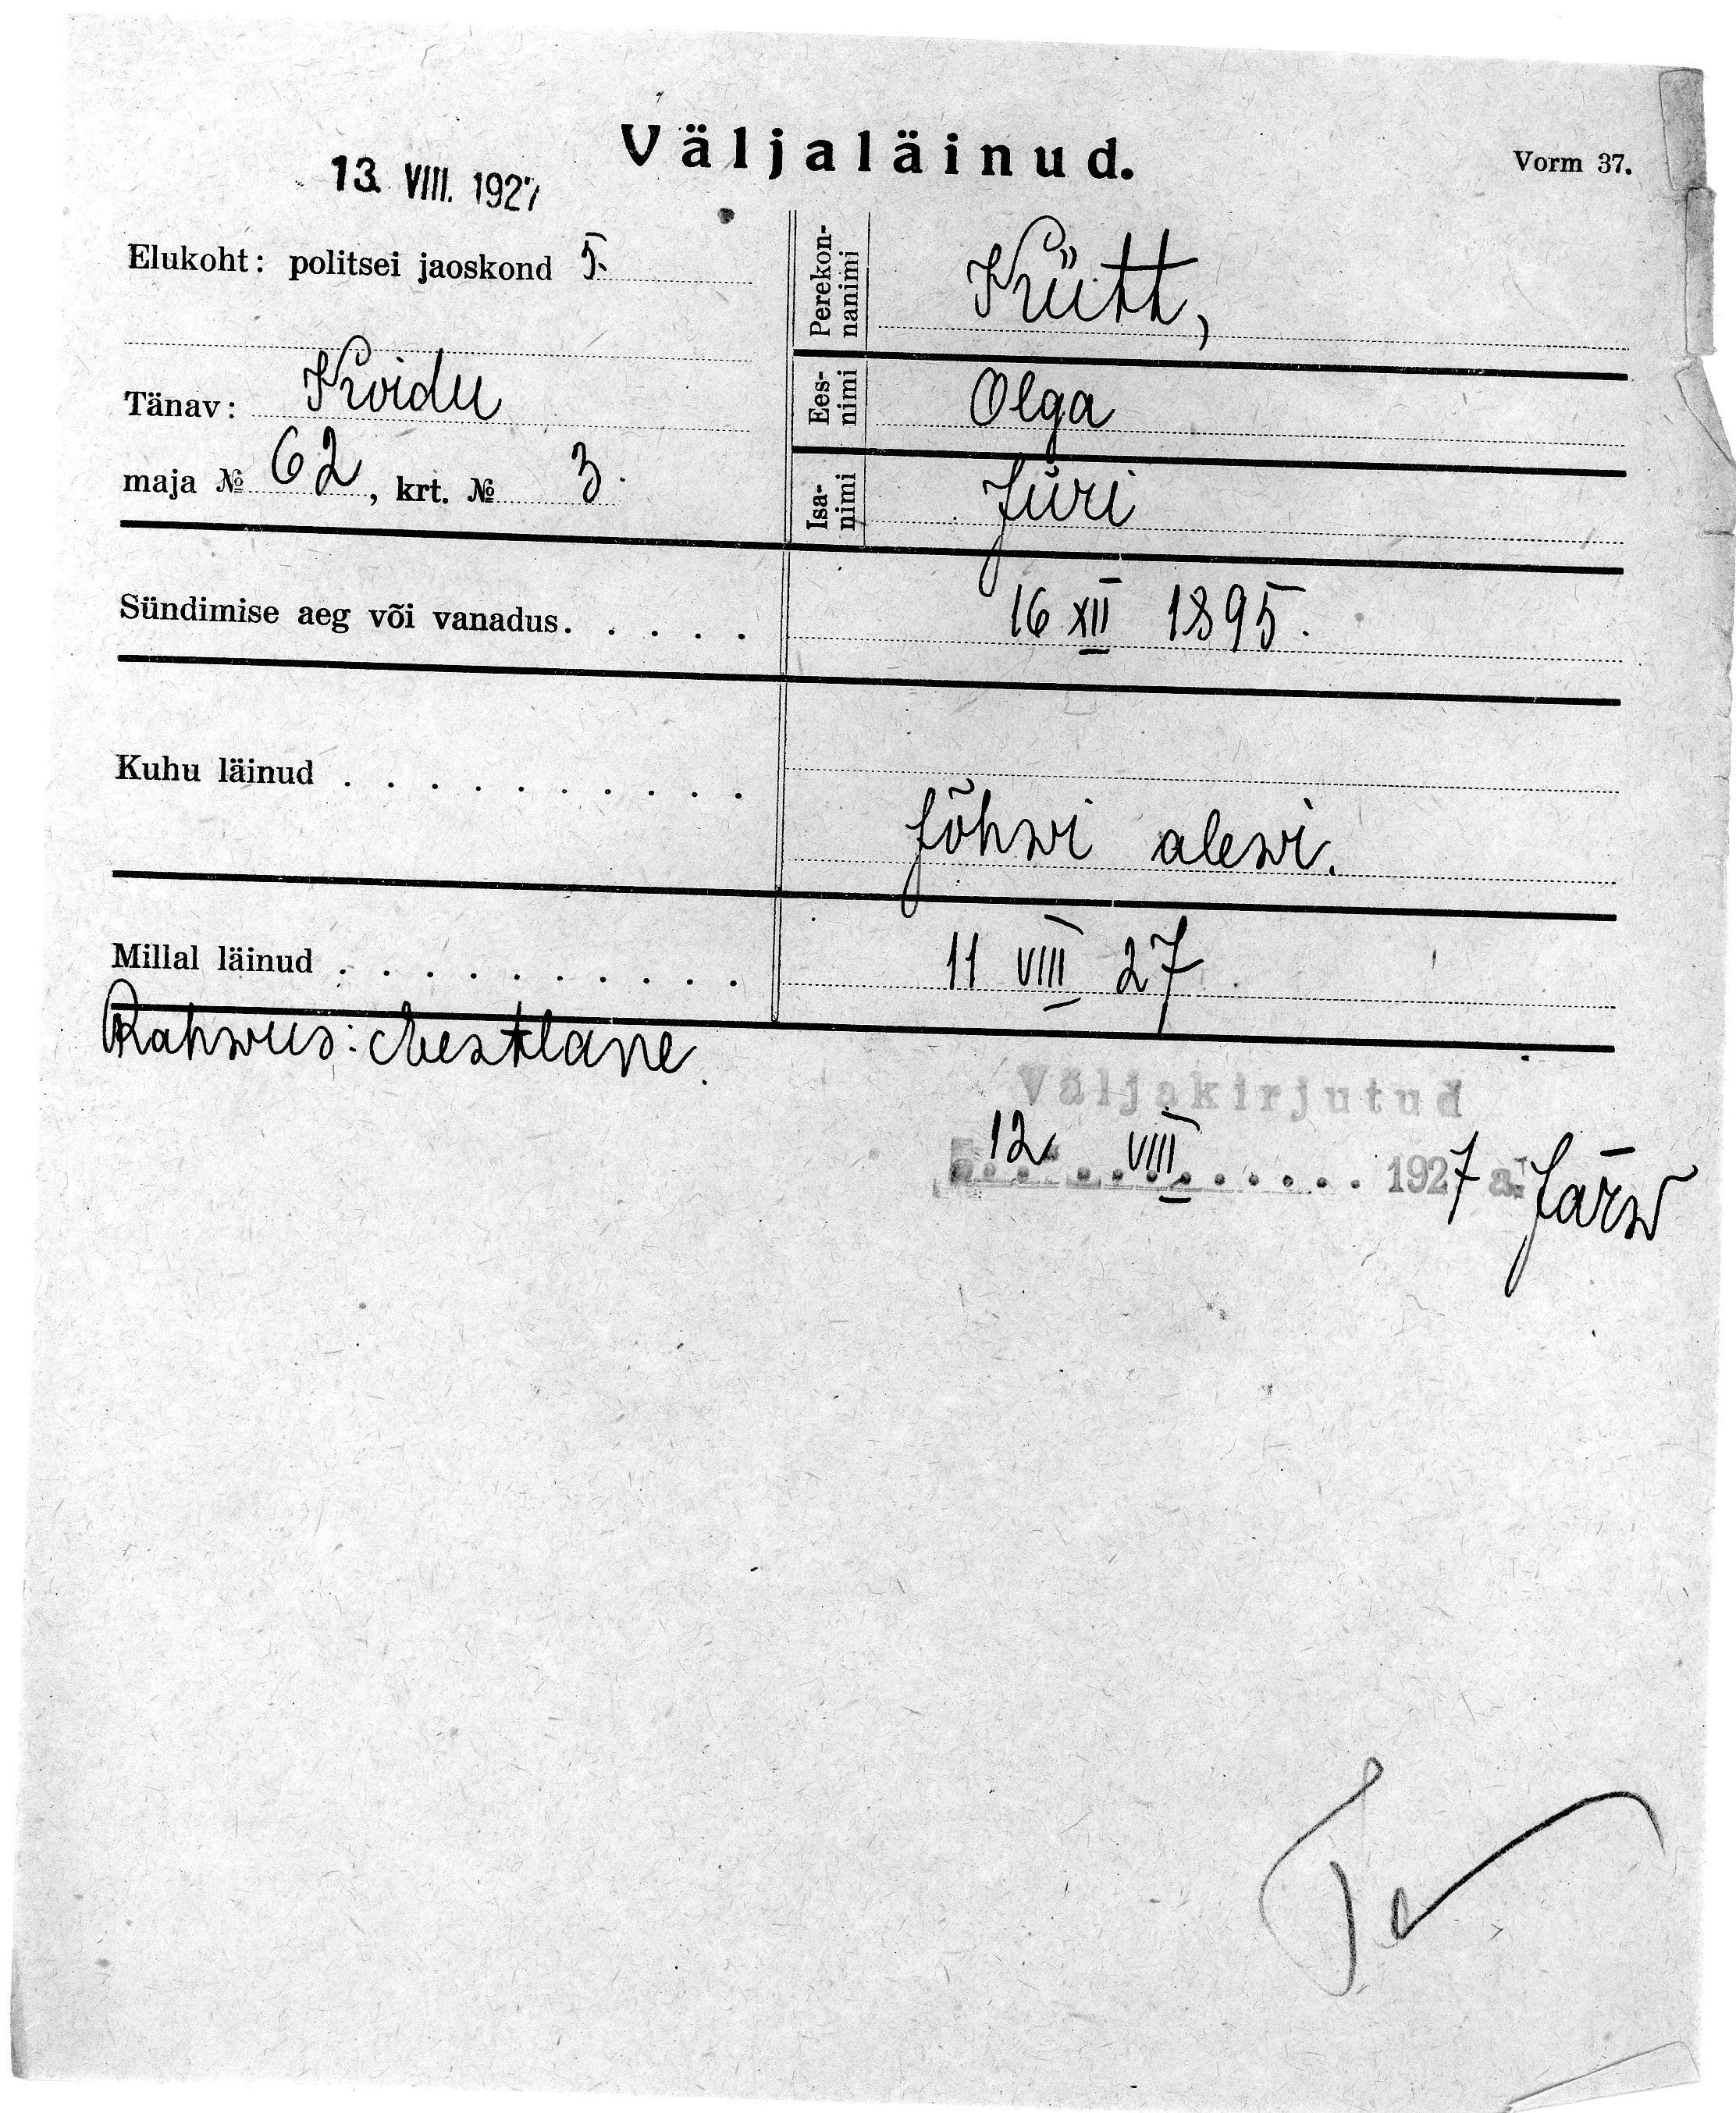 Väljaläinud.
Vorm 37.
13. VIII. 1927
Elukoht: politsei jaoskond 5.
Tänav: Koidu
maja № 62, krt. № 3.
Perekon-
nanimi
Kütt,
Ees-
nimi
Olga
Isa-
nimi
Jüri
Sündimise aeg või vanadus. . . . . 16 XII 1895.
Kuhu läinud . . . . . . . . . .
Jõhwi alewi.
Millal läinud . . . . . . . . . . 11 VIII 27.
Rahwus: Eestlane.
Väljakirjutud
12 VIII 1927 a. Järw